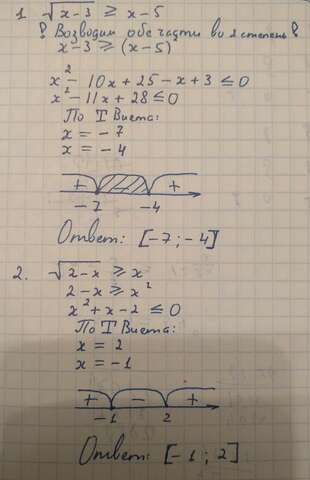 1. √x-3 ≥ x-5
! Возводим обе части во 2 степень !
x-3 ≥ (x-5)
x² - 10x + 25 - x + 3 ≤ 0
x² - 11x + 28 ≤ 0
По Т Виета:
x = -7
x = -4
+ - +
-7 -4
Ответ: [-7; -4]
2. √2-x ≥ x
2-x ≥ x²
x² + x - 2 ≤ 0
По Т Виета:
x = 2
x = -1
+ - +
-1 2
Ответ: [-1; 2]